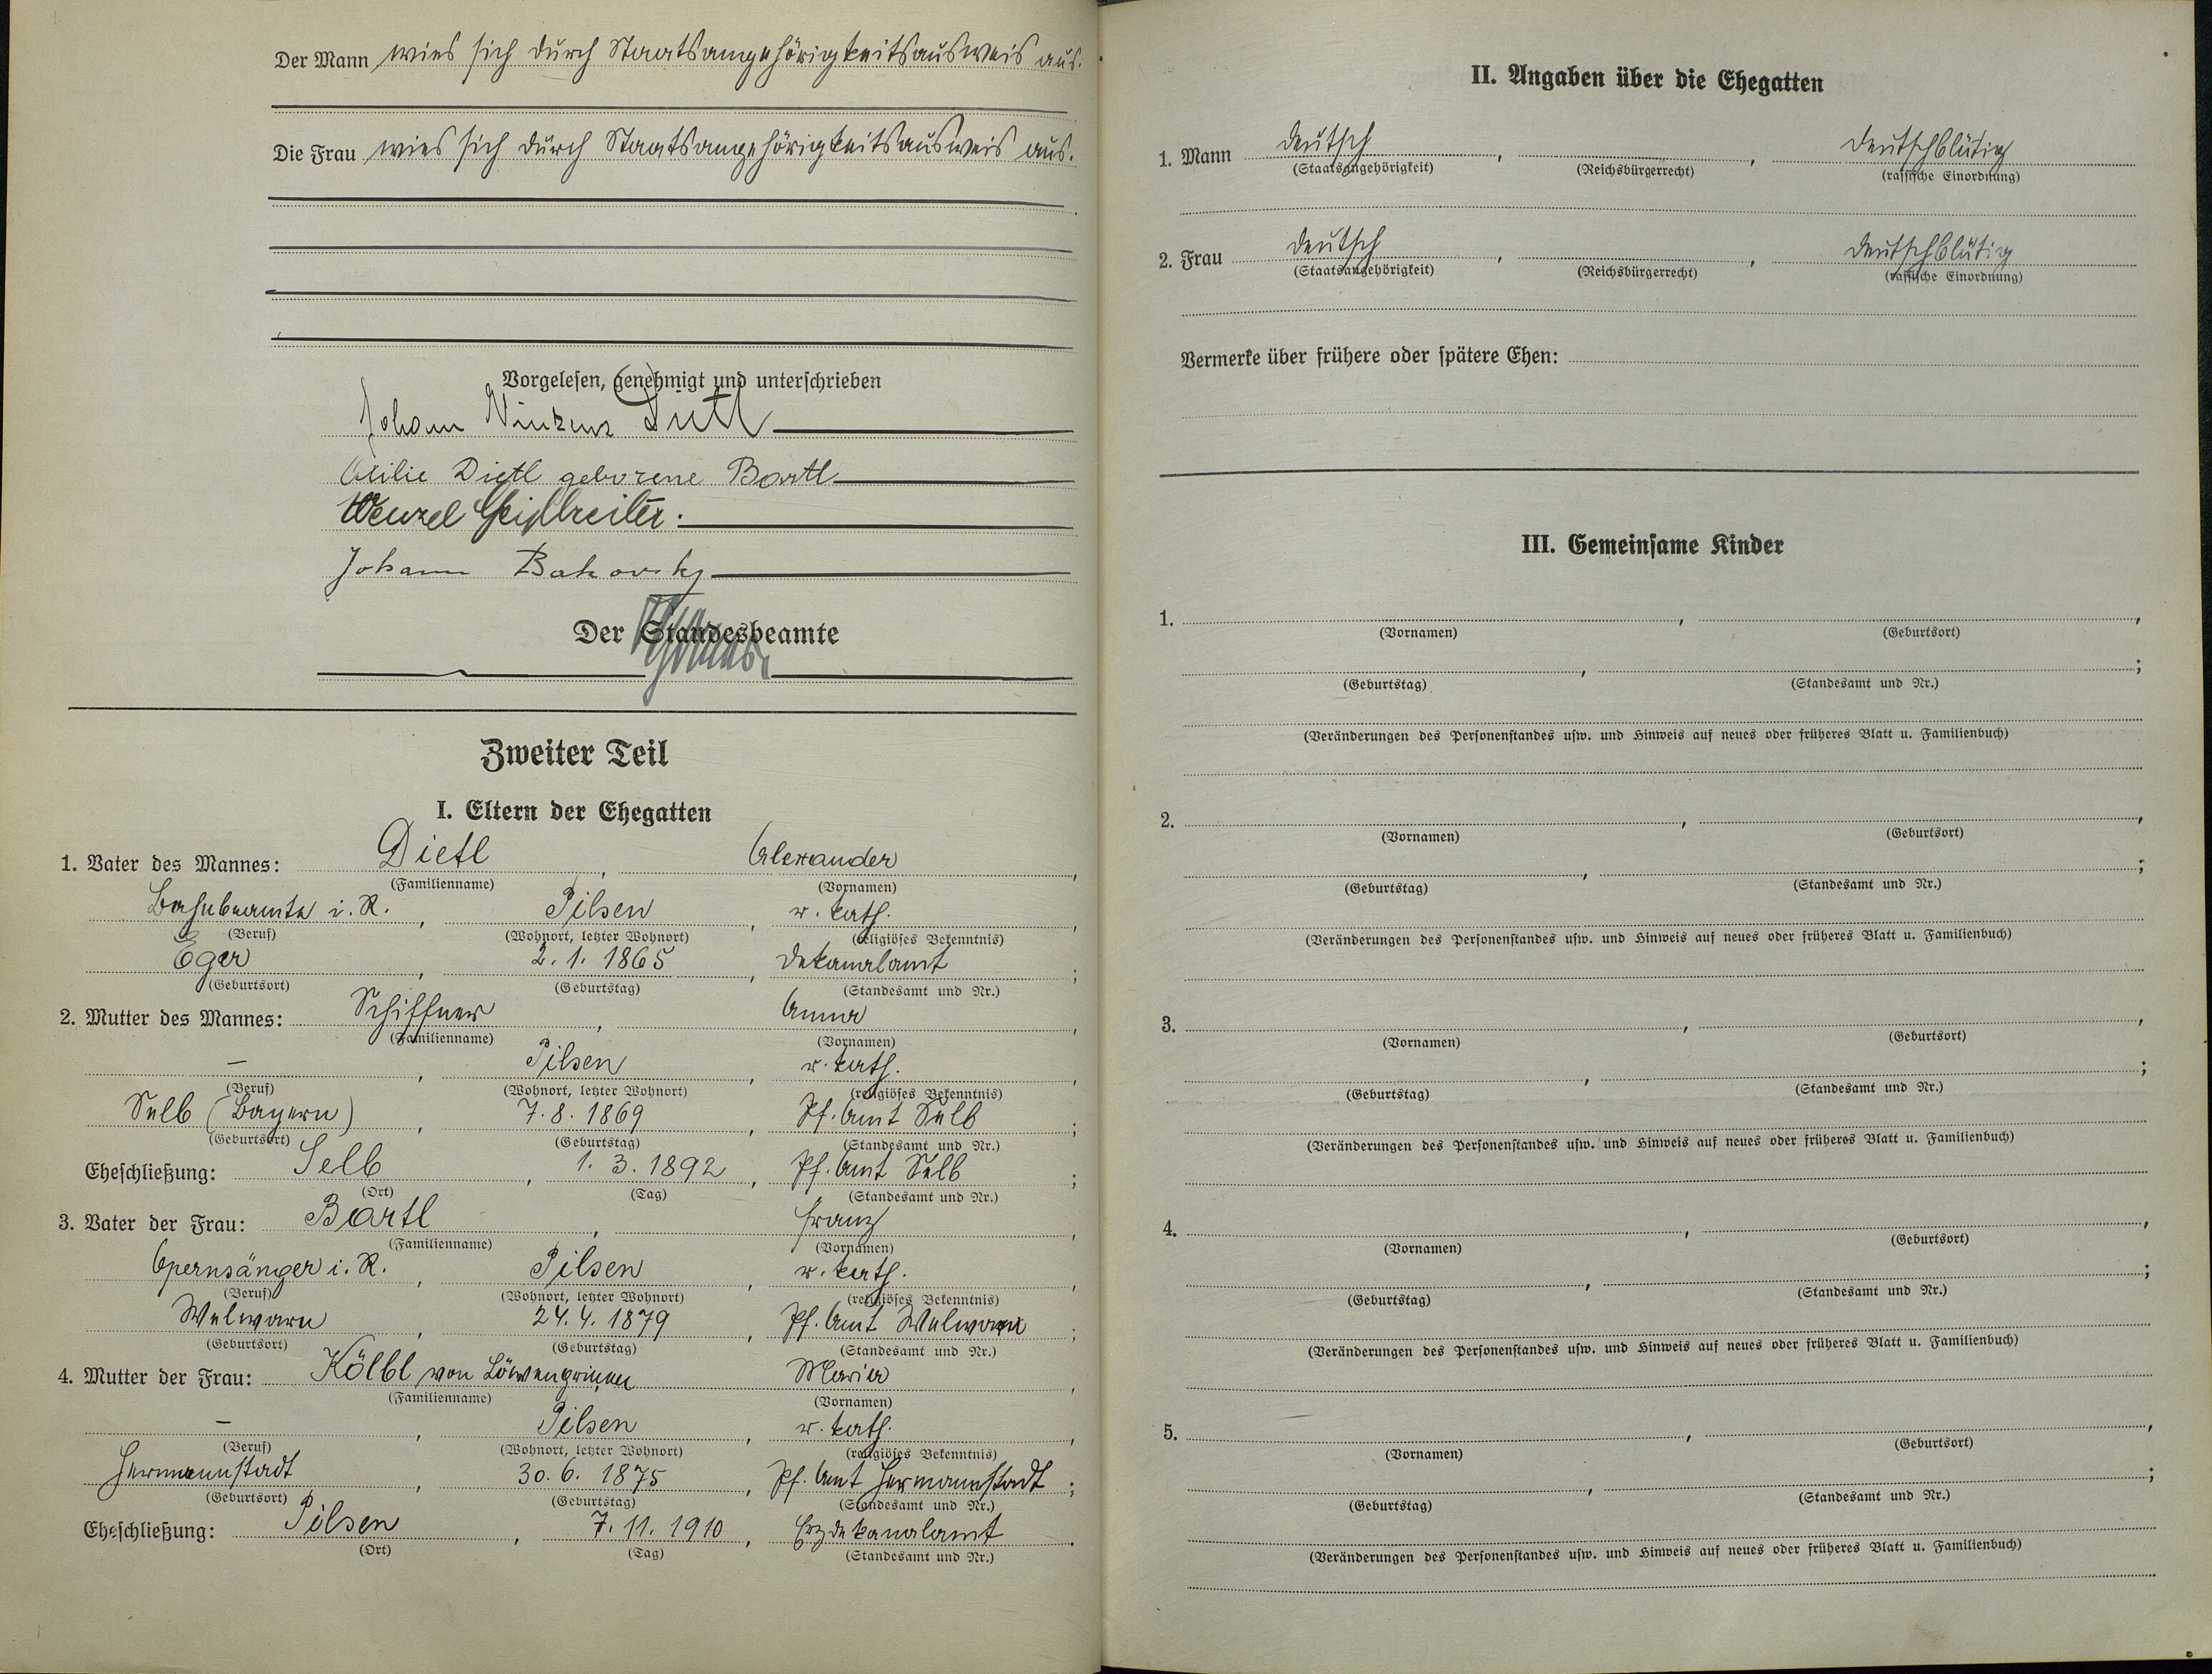 Der Mann wies sich durch Staatsangehörigkeitsausweis aus.
Die Frau wies sich durch Staatsangehörigkeitsausweis aus.
Vorgelesen, genehmigt und unterschrieben
Johann Vinzenz Dietl
Cäcilie Dietl geborene Bartl
Wenzel
Johann
Der Standesbeamte
Zweiter Teil
I. Eltern der Ehegatten
1. Vater des Mannes: Dietl, Alexander,
(Familienname) (Vornamen)
Bahnbeamte i. R., Pilsen, r. kath.,
(Beruf) (Wohnort, letzter Wohnort) (religiöses Bekenntnis)
Eger, 2. 1. 1865, Dekanalamt;
(Geburtsort) (Geburtstag) (Standesamt und Nr.)
2. Mutter des Mannes: Schiffner, Anna,
(Familienname) (Vornamen)
–, Pilsen, r. kath.,
(Beruf) (Wohnort, letzter Wohnort) (religiöses Bekenntnis)
Selb (Bayern), 7. 8. 1869, Pf. Amt Selb;
(Geburtsort) (Geburtstag) (Standesamt und Nr.)
Eheschließung: Selb, 1. 3. 1892, Pf. Amt Selb;
(Ort) (Tag) (Standesamt und Nr.)
3. Vater der Frau: Bartl, Franz,
(Familienname) (Vornamen)
Opernsänger i. R., Pilsen, r. kath.,
(Beruf) (Wohnort, letzter Wohnort) (religiöses Bekenntnis)
Welwarn, 24. 4. 1879, Pf. Amt Welwarn;
(Geburtsort) (Geburtstag) (Standesamt und Nr.)
4. Mutter der Frau: Kölbl von Maria,
(Familienname) (Vornamen)
–, Pilsen, r. kath.,
(Beruf) (Wohnort, letzter Wohnort) (religiöses Bekenntnis)
Hermannstadt, 30. 6. 1875, Pf. Amt Hermannstadt;
(Geburtsort) (Geburtstag) (Standesamt und Nr.)
Eheschließung: Pilsen, 7. 11. 1910, Erzdekanalamt.
(Ort) (Tag) (Standesamt und Nr.)
II. Angaben über die Ehegatten
1. Mann deutsch, , deutschblütig
(Staatsangehörigkeit) (Reichsbürgerrecht) (rassische Einordnung)
2. Frau deutsch, , deutschblütig
(Staatsangehörigkeit) (Reichsbürgerrecht) (rassische Einordnung)
Vermerke über frühere oder spätere Ehen:
III. Gemeinsame Kinder
1. , ,
(Vornamen) (Geburtsort)
, ;
(Geburtstag) (Standesamt und Nr.)
(Veränderungen des Personenstandes usw. und Hinweis auf neues oder früheres Blatt u. Familienbuch)
2. , ,
(Vornamen) (Geburtsort)
, ;
(Geburtstag) (Standesamt und Nr.)
(Veränderungen des Personenstandes usw. und Hinweis auf neues oder früheres Blatt u. Familienbuch)
3. , ,
(Vornamen) (Geburtsort)
, ;
(Geburtstag) (Standesamt und Nr.)
(Veränderungen des Personenstandes usw. und Hinweis auf neues oder früheres Blatt u. Familienbuch)
4. , ,
(Vornamen) (Geburtsort)
, ;
(Geburtstag) (Standesamt und Nr.)
(Veränderungen des Personenstandes usw. und Hinweis auf neues oder früheres Blatt u. Familienbuch)
5. , ,
(Vornamen) (Geburtsort)
, ;
(Geburtstag) (Standesamt und Nr.)
(Veränderungen des Personenstandes usw. und Hinweis auf neues oder früheres Blatt u. Familienbuch)